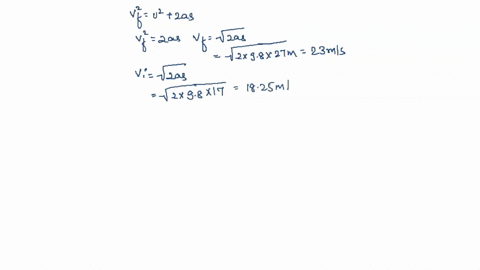 v_f² = u² + 2as
v_f² = 2as v_f = √2as
= √2 × 9.8 × 27m = 23m/s
v_i = √2as
= √2 × 9.8 × 17 = 18.25m/